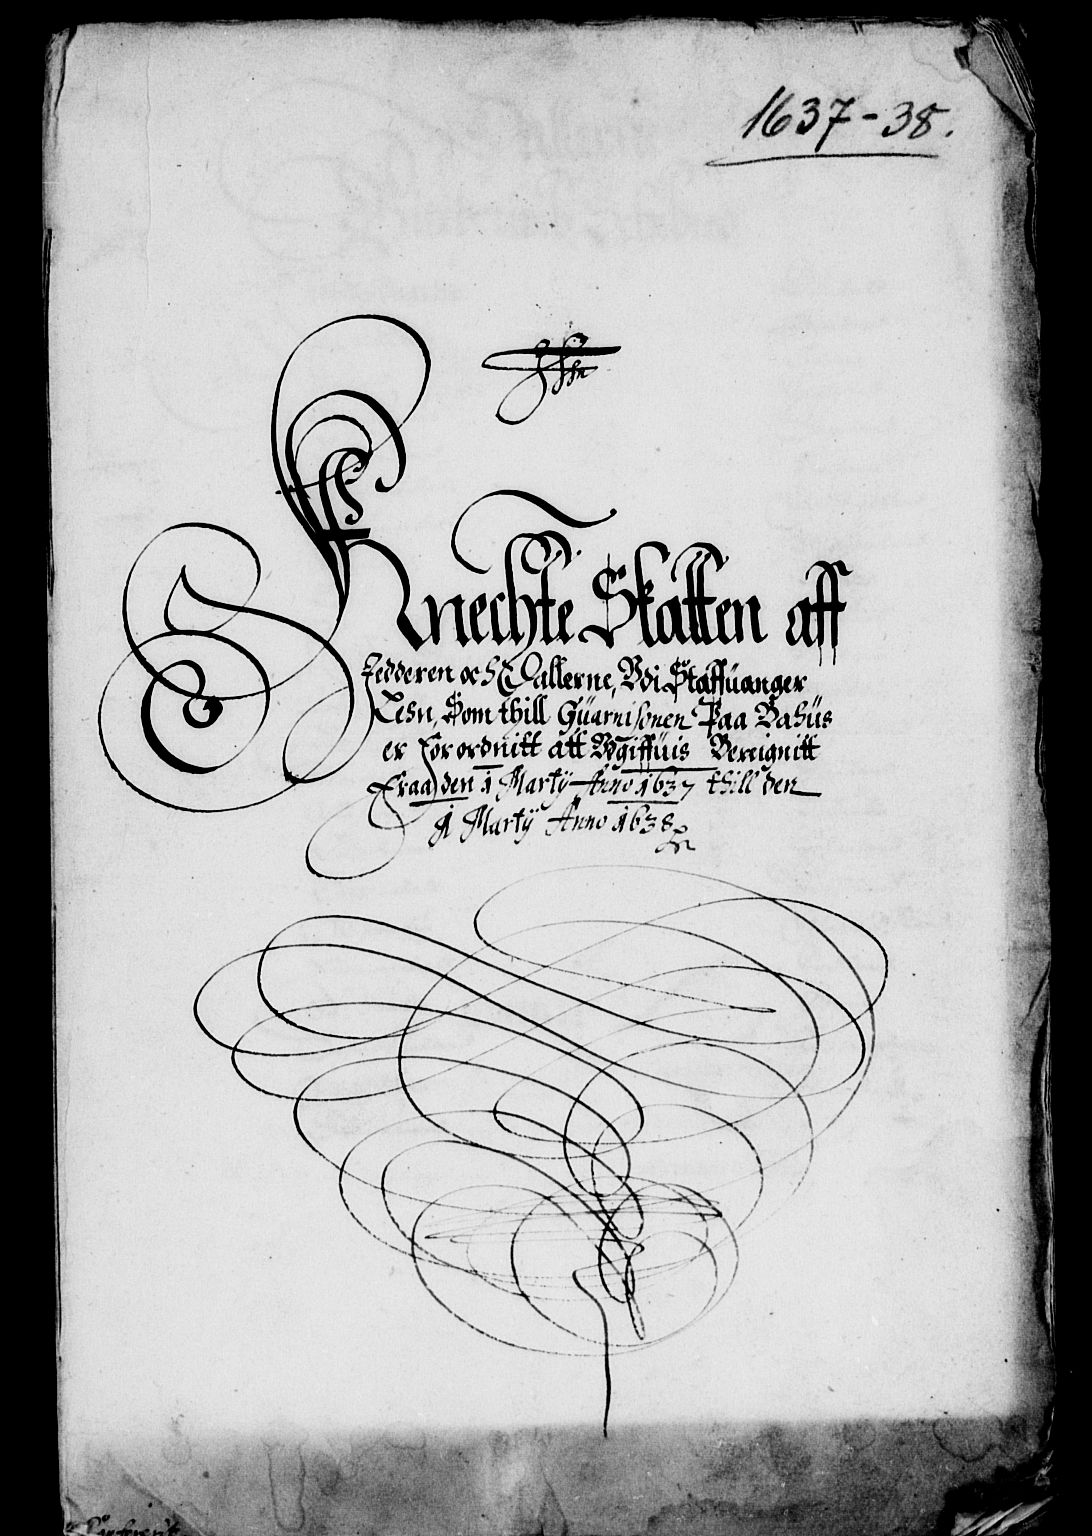 1637-38.
Knechte Skatten aff
Jedderen och Dallerne, Vdi Staffuanger
Lehn, Som thill Guarnisonen Paa Bahüs
er forordnitt att Vdgiffuis Bereignitt
Fraa den 1 Martÿ Anno 1637 thill den
1 Martÿ Anno 1638